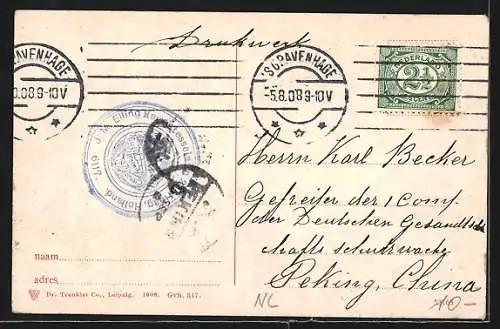 Drukwerk
'SGRAVENHAGE
-5.8.08 9-10V
'SGRAVENHAGE
.08 9-10V
NEDERLAND
2½
CENT
Holland.
Herrn Karl Becker
Gefreiter der 1 Comp.
der Deutschen Gesandt
schaftsschutzwache
Peking, China
naam
adres
Dr. Trenkler Co., Leipzig. 1908. Gvh. 317.
NL
10-